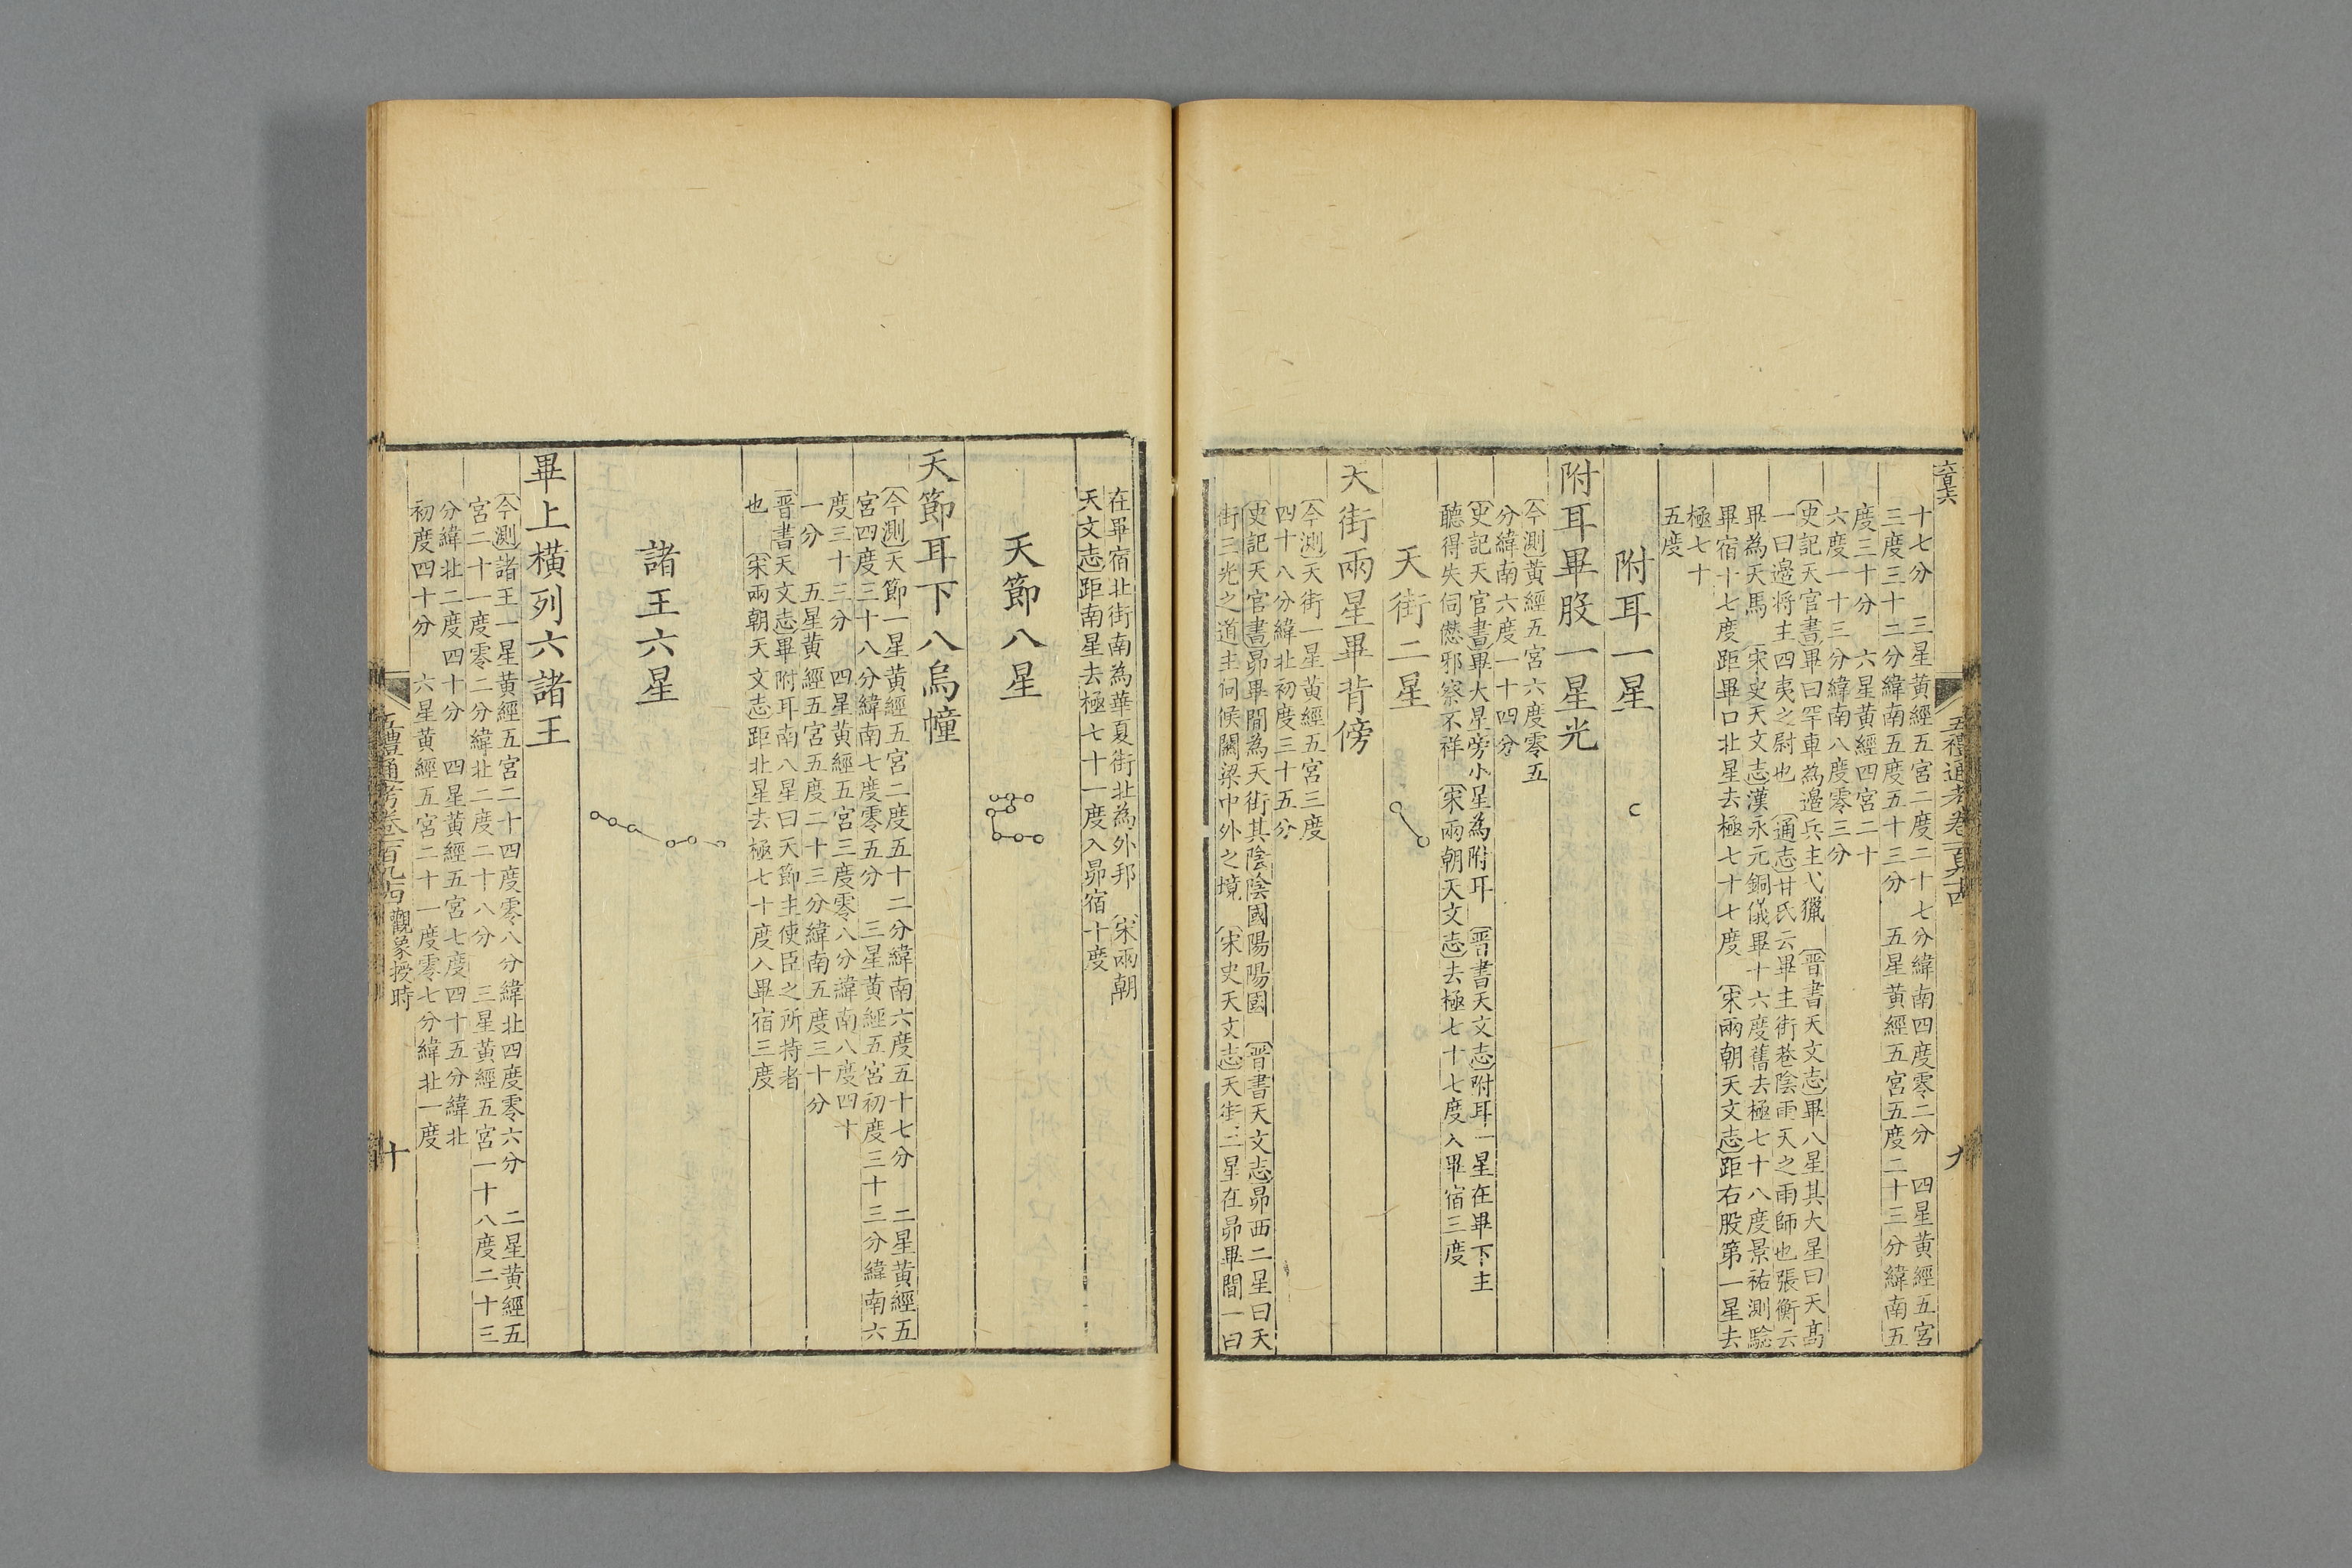 十七分　三星黄經五宮二度二十七分緯南四度零二分　四星黄經五宮
三度三十二分緯南五度五十三分　五星黄經五宮五度二十三分緯南五
度三十分　六星黄經四宮二十
六度一十三分緯南八度零三分
史記天官書畢曰罕車為邊兵主弋獵　晉書天文志畢八星其大星曰天髙
一曰邊將主四夷之尉也　通志甘氏云畢主街巷陰雨天之雨師也張衡云
畢為天馬　宋史天文志漢永元銅儀畢十六度舊去極七十八度景祐測驗
畢宿十七度距畢口北星去極七十七度　宋兩朝天文志距右股第一星去
極七十
五度
附耳一星
附耳畢股一星光
今測黃經五宮六度零五
分緯南六度一十四分
史記天官書畢大星旁小星為附耳　晉書天文志附耳一星在畢下主
聽得失伺愆邪察不祥　宋兩朝天文志去極七十七度入畢宿三度
天街二星
天街兩星畢背傍
今測天街一星黃經五宮三度
四十八分緯北初度三十五分
史記天官書昴畢間為天街其陰陰國陽陽國　晉書天文志昴西二星曰天
街三光之道主伺候關梁中外之境　宋史天文志天街二星在昴畢間一曰
五禮通考卷一百九十四
九
在畢宿北街南為華夏街北為外邦　宋兩朝
天文志距南星去極七十一度入昴宿十度
天節八星
天節耳下八烏幢
今測天節一星黄經五宮二度五十二分緯南六度五十七分　二星黄經五
宮四度三十八分緯南七度零五分　三星黄經五宮初度三十三分緯南六
度三十三分　四星黄經五宮三度零八分緯南八度四十
一分　五星黄經五宮五度二十三分緯南五度三十分
晉書天文志畢附耳南八星曰天節主使臣之所持者
也　宋兩朝天文志距北星去極七十度入畢宿三度
諸王六星
畢上橫列六諸王
今測諸王一星黄經五宮二十四度零八分緯北四度零六分　二星黄經五
宮二十一度零二分緯北二度二十八分　三星黄經五宮一十八度二十三
分緯北二度四十分　四星黄經五宮七度四十五分緯北
初度四十分　六星黄經五宮二十一度零七分緯北一度
五禮通考卷一百九十四 觀象授時
十